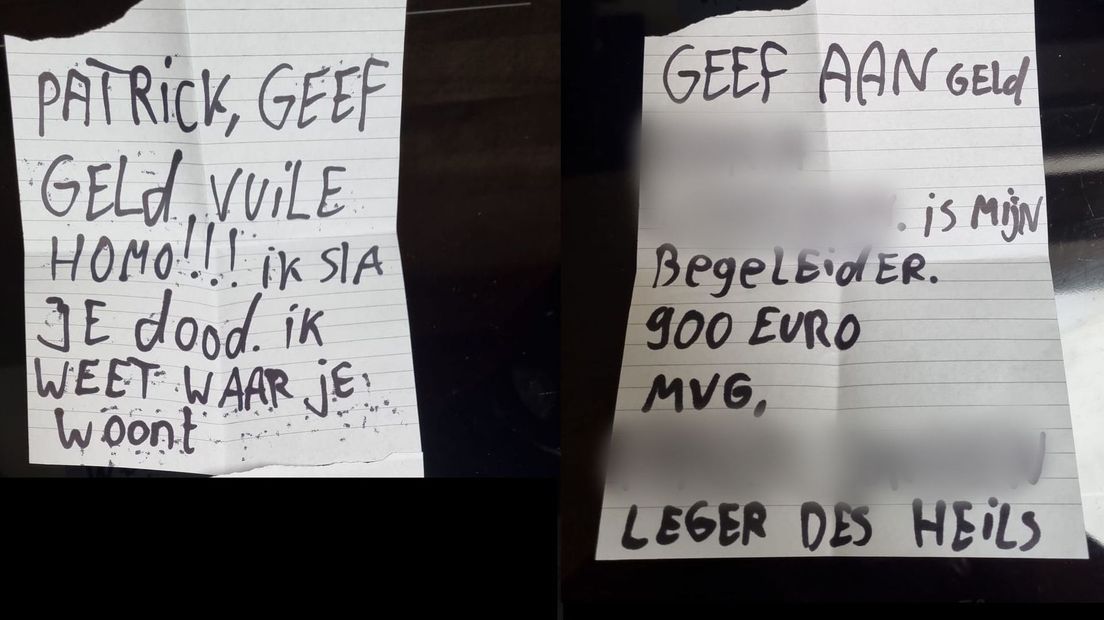 PATRiCK, GEEF
GELd, VUiLE
HOMO!!! iK SlA
JE dood. iK
WEET WAAR jE
Woont
GEEF AAN GELd
. iS MijN
BegeLEidER.
900 EURO
MVG,
LEGER DES HEiLS